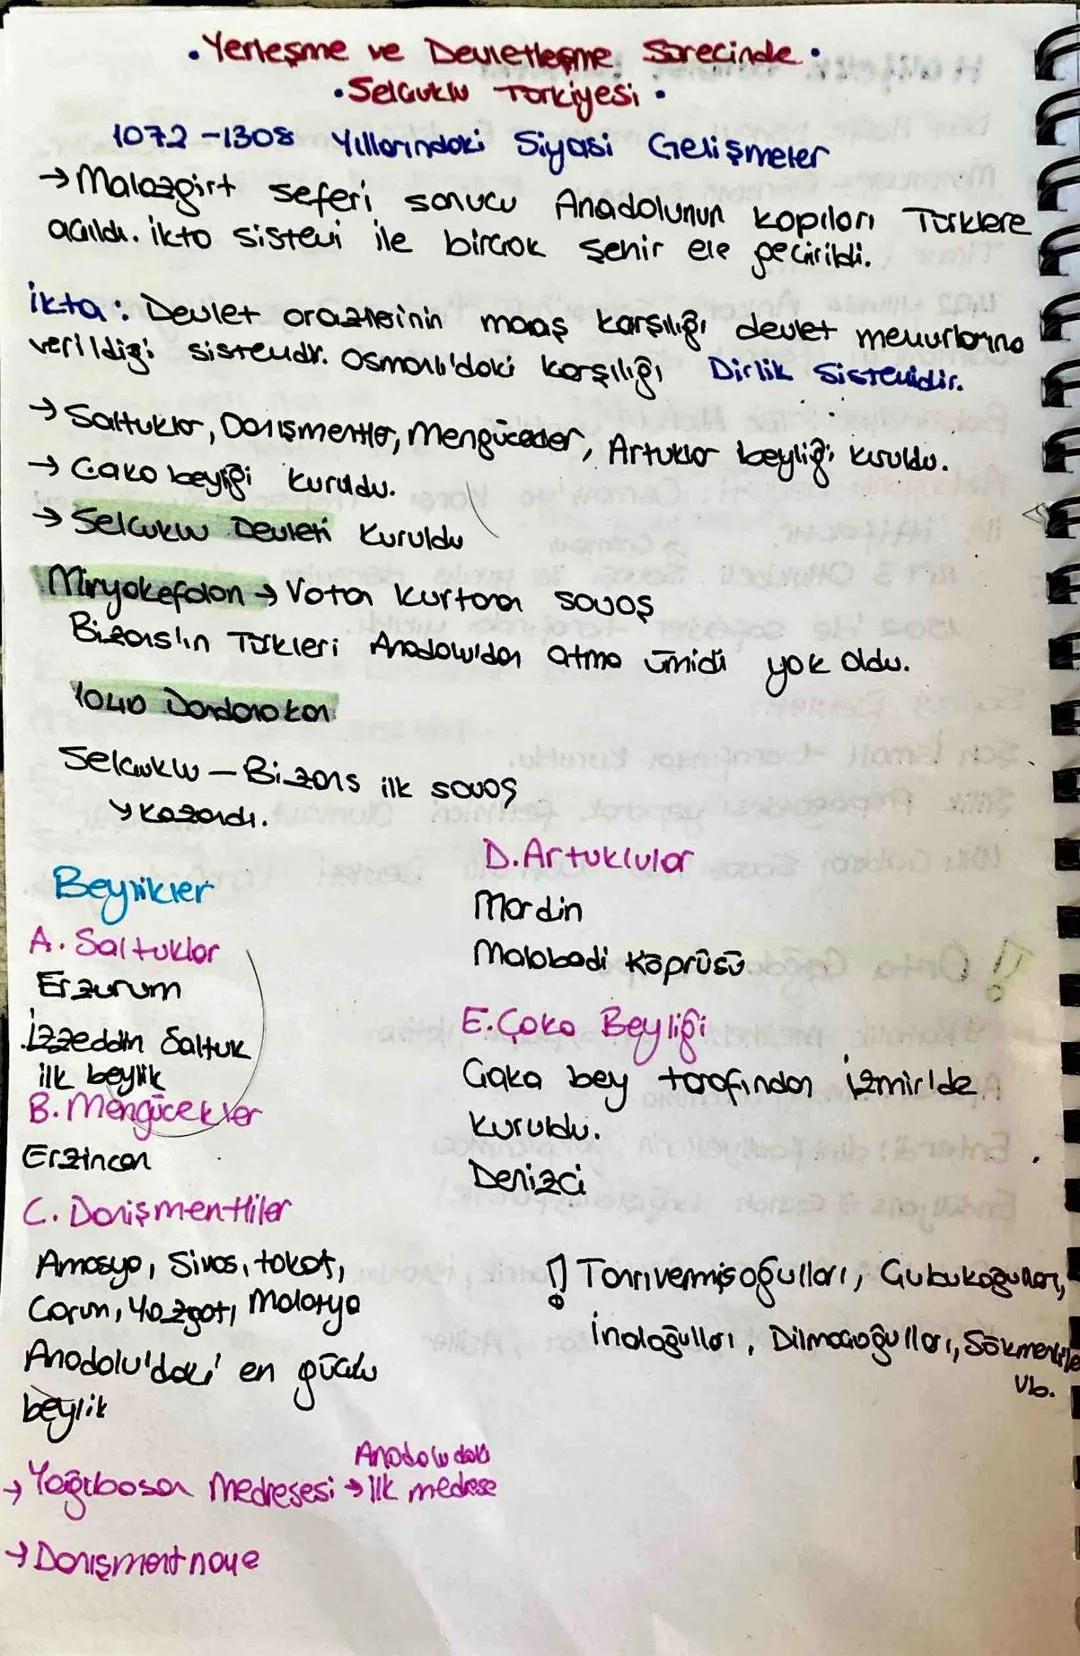 • Yerleşme ve Devletleşme Sürecinde •
• Selçuklu Türkiyesi •
1072-1308 Yıllarındaki Siyasi Gelişmeler
→ Malazgirt seferi sonucu Anadolunun kapıları Türklere
açıldı. İkta sistemi ile birçok şehir ele geçirildi.
İkta: Devlet arazilerinin maaş karşılığı devlet memurlarına
verildiği sistemdir. Osmanlı'daki karşılığı Dirlik Sistemidir.
→ Saltuklar, Danışmentler, Mengücekler, Artuklar beyliği kuruldu.
→ Çaka beyliği kuruldu.
→ Selçuklu Devleti kuruldu
Miryokefalon → Vatan kurtaran savaş
Bizans'ın Türkleri Anadolu'dan atma ümidi yok oldu.
1040 Dandanakan
Selçuklu - Bizans ilk savaş
↳ kazandı.
Beylikler
A. Saltuklar
Erzurum
İzzeddin Saltuk
ilk beylik
B. Mengücekler
Erzincan
C. Danişmentliler
Amasya, Sivas, tokat,
Çorum, Yozgat, Malatya
Anadolu'daki en güçlü
beylik
→ Yağıbasan Medresesi → Anadoludaki
ilk medrese
→ Danışmentname
D. Artuklular
Mardin
Malabadi Köprüsü
E. Çaka Beyliği
Çaka bey tarafından İzmir'de
kuruldu.
Denizci
! Tanrıvermişoğulları, Çubukoğulları,
İnaloğulları, Dilmaçoğulları, Sökmenliler
vb.